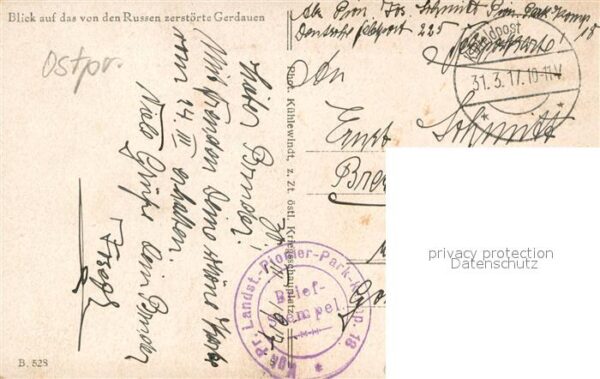 Blick auf das von den Russen zerstörte Gerdauen
Ostpr.
Lieber Bruder!
30. III 1917
Mit Freuden Deine schöne Karte
vom 24 III erhalten.
Viele Grüße Dein Bruder
B. 528
Phot. Kühlewindt, z. Zt. östl. Kriegsschauplatz.
Schmitt Pion. Park-Komp
Deutsche Feldpost 225
Feldpostkarte
An
Ernst Schmitt
K.D. Feldpost
31.3.17.10-11V
Kgl. Pr. Landst.-Pionier-Park-Komp. 18
Brief-
stempel.
privacy protection
Datenschutz